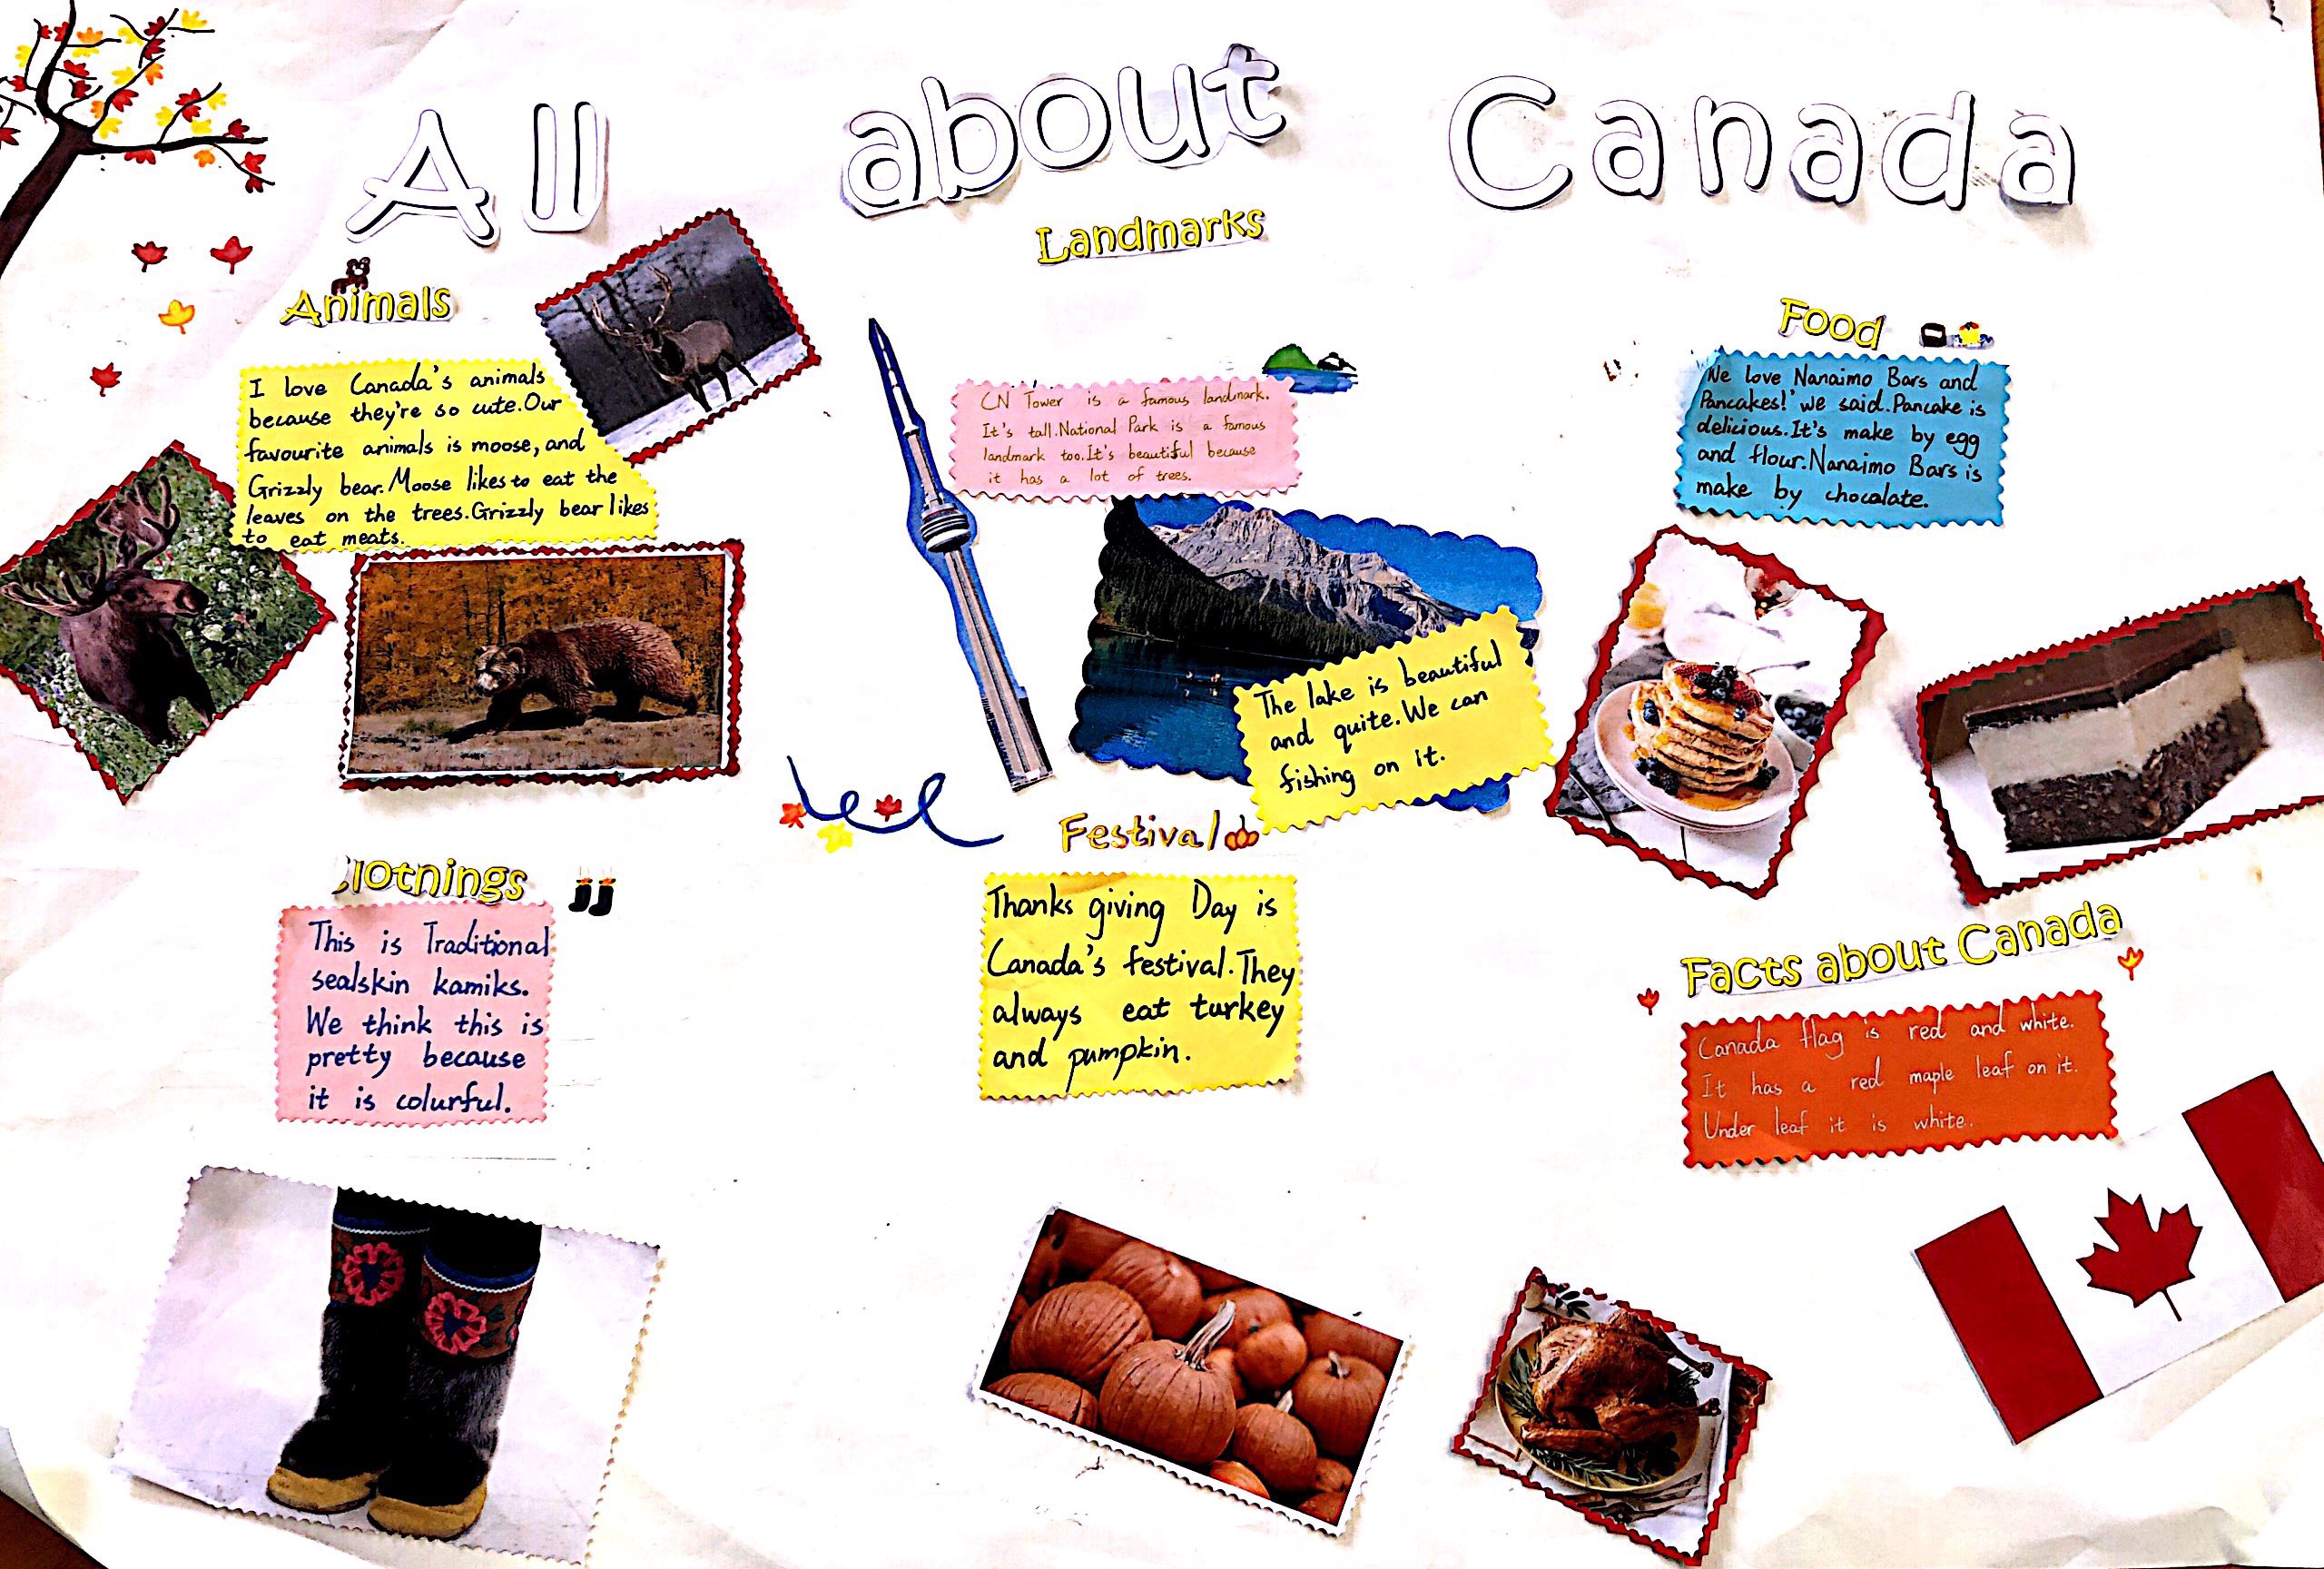 All about Canada
Animals
I love Canada's animals
because they're so cute.Our
favourite animals is moose, and
Grizzly bear.Moose likes to eat the
leaves on the trees.Grizzly bear likes
to eat meats.
Landmarks
CN Tower is a famous landmark.
It's tall.National Park is a famous
landmark too.It's beautiful because
it has a lot of trees.
The lake is beautiful
and quite.We can
fishing on it.
Food
We love Nanaimo Bars and
Pancakes!' we said.Pancake is
delicious.It's make by egg
and flour.Nanaimo Bars is
make by chocolate.
Clothings
This is Traditional
sealskin kamiks.
We think this is
pretty because
it is colurful.
Festival
Thanks giving Day is
Canada's festival.They
always eat turkey
and pumpkin.
Facts about Canada
Canada flag is red and white.
It has a red maple leaf on it.
Under leaf it is white.